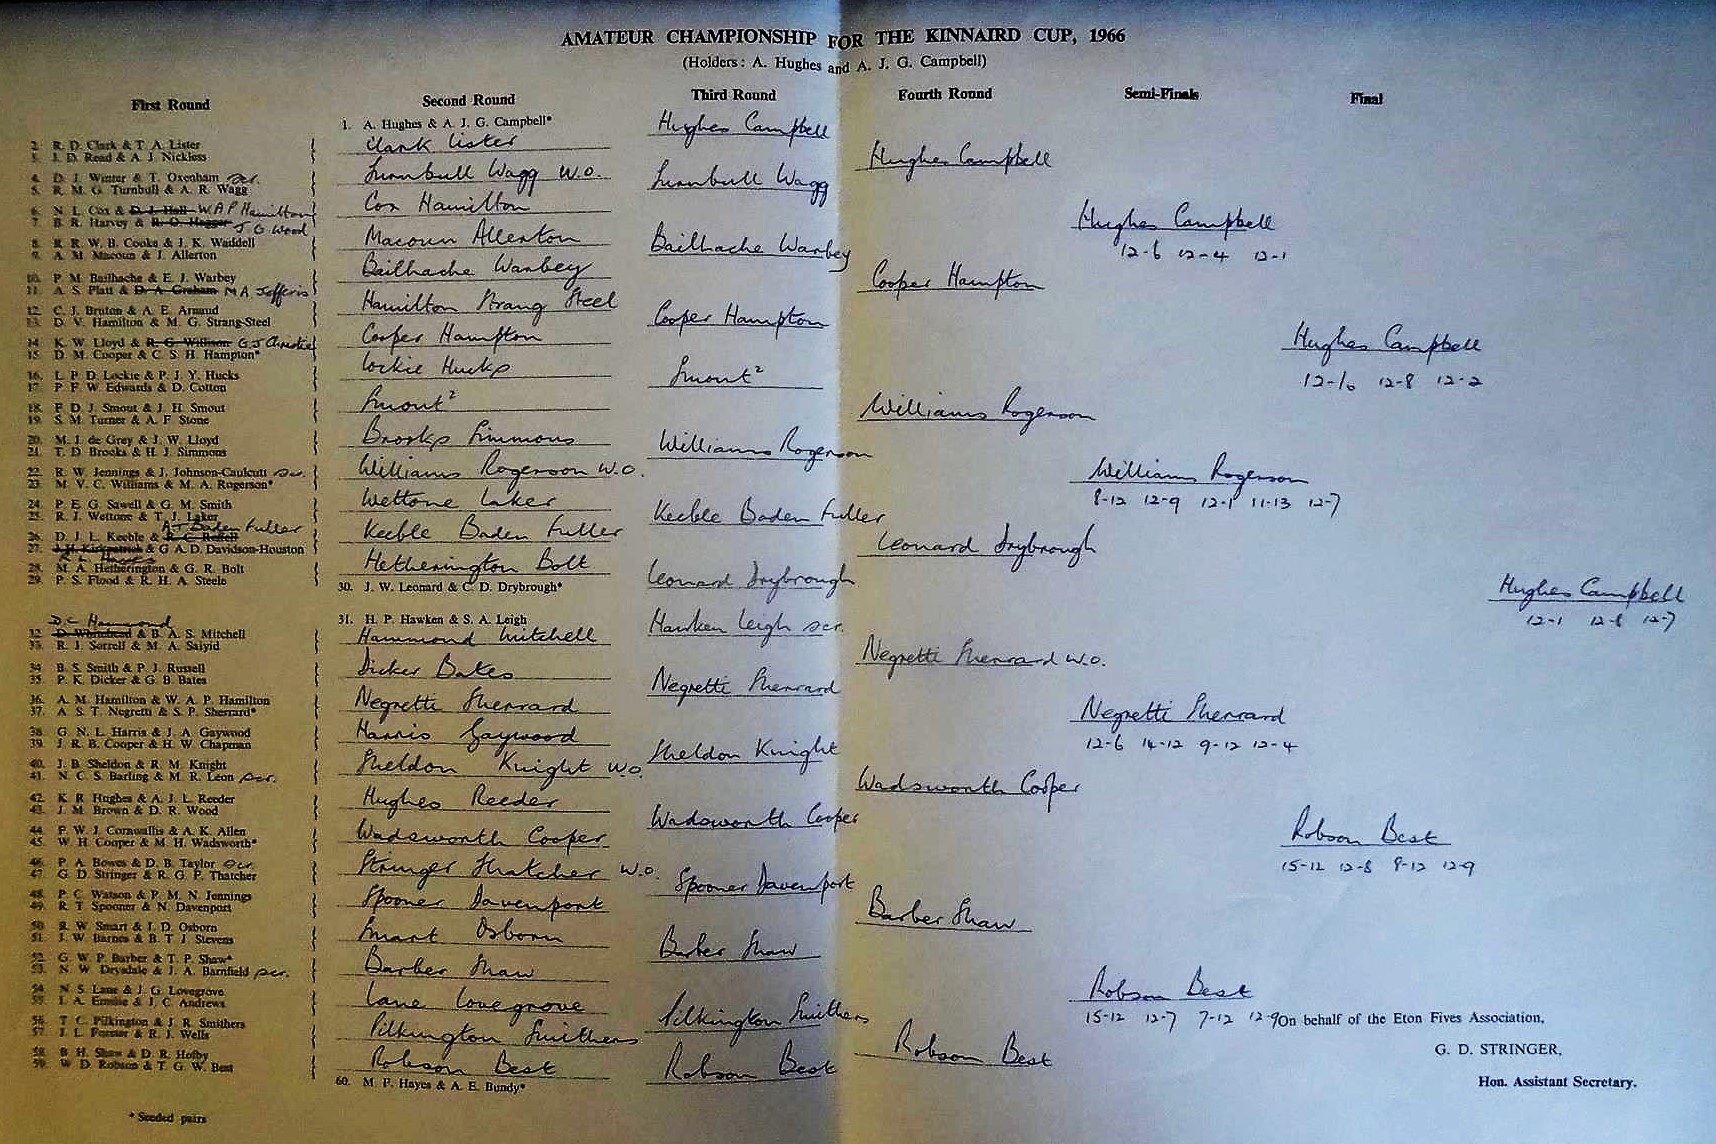 AMATEUR CHAMPIONSHIP FOR THE KINNAIRD CUP, 1966
(Holders: A. Hughes and A. J. G. Campbell)
First Round
2. R. D. Clark & T. A. Lister
3. J. D. Read & A. J. Nickless
4. D. J. Winter & T. Oxenham scr.
5. R. M. G. Turnbull & A. R. Wagg
6. N. L. Cox & D. J. Hall W.A.P Hamilton
7. B. R. Harvey & J G Wood
8. R. R. W. B. Cooke & J. K. Waddell
9. A. M. Macoun & J. Allerton
10. P. M. Bailhache & E. J. Warbey
11. A. S. Platt & D. A. Graham M A Jefferis
12. C. J. Bruton & A. E. Arnaud
13. D. V. Hamilton & M. G. Strang-Steel
14. K. W. Lloyd & R. G. Willison G.J Christie
15. D. M. Cooper & C. S. H. Hampton*
16. L. P. D. Lockie & P. J. Y. Hucks
17. P. F. W. Edwards & D. Cotton
18. F. D. J. Smout & J. H. Smout
19. S. M. Turner & A. F. Stone
20. M. J. de Grey & J. W. Lloyd
21. T. D. Brooks & H. J. Simmons
22. R. W. Jennings & J. Johnson-Caulcutt scr.
23. M. V. C. Williams & M. A. Rogerson*
24. P. E. G. Sawell & G. M. Smith
25. R. J. Wettone & T. J. Laker
A J Baden Fuller
26. D. J. L. Keeble &
27. J. H. Kirkpatrick & G A. D. Davidson-Houston
28. M. A. Hetherington & G. R. Bolt
29. P. S. Flood & R. H. A. Steele
D C Hammond
32. D. Whitehead & B. A. S. Mitchell
33. R. J. Sorrell & M. A. Saiyid
34. B. S. Smith & P. J. Russell
35. P. K. Dicker & G. B. Bates
36. A. M. Hamilton & W. A. P. Hamilton
37. A. S. T. Negretti & S. P. Sherrard*
38. G. N. L. Harris & J. A. Gaywood
39. J. R. B. Cooper & H. W. Chapman
40. J. B. Sheldon & R. M. Knight
41. N. C. S. Barling & M. R. Leon scr.
42. K. R. Hughes & A. J. L. Reeder
43. J. M. Brown & D. R. Wood
44. P. W. J. Cornwallis & A. K. Allen
45. W. H. Cooper & M. H. Wadsworth*
46. P. A. Bowes & D. B. Taylor scr.
47. G. D. Stringer & R. G. P. Thatcher
48. P. C. Watson & P. M. N. Jennings
49. R. T. Spooner & N. Davenport
50. R. W. Smart & J. D. Osborn
51. J. W. Barnes & B. T. J. Stevens
52. G. W. P. Barber & T. P. Shaw*
53. N. W. Drysdale & J. A. Bamfield scr.
54. N. S. Lane & J. G. Lovegrove
55. I. A. & J. C. Andrews
56. T. C. Pilkington & J. R. Smithers
57. J. L. Forster & R. J. Wells
58. B. H. Shaw & D. R. Holby
59. W. D. Robson & T. G. W. Best
* Seeded pairs
Second Round
1. A. Hughes & A. J. G. Campbell*
Clark Lister
Turnbull Wagg W.O.
Cox Hamilton
Macoun Allerton
Bailhache Warbey
Hamilton Strang Steel
Cooper Hampton
Lockie Hucks
Smout²
Brooks Simmons
Williams Rogerson W.O.
Wettone Laker
Keeble Baden Fuller
Hetherington Bolt
30. J. W. Leonard & C. D. Drybrough*
31. H. P. Hawken & S. A. Leigh
Hammond Mitchell
Dicker Bates
Negretti Sherrard
Harris Gaywood
Sheldon Knight W.O.
Hughes Reeder
Wadsworth Cooper
Stringer Thatcher W.O.
Spooner Davenport
Smart Osborn
Barber Shaw
Lane Lovegrove
Pilkington Smithers
Robson Best
60. M. F. Hayes & A. E. Bundy*
Third Round
Hughes Campbell
Turnbull Wagg
Bailhache Warbey
Cooper Hampton
Smout²
Williams Rogerson
Keeble Baden Fuller
Leonard Drybrough
Hawken Leigh scr.
Negretti Sherrard
Sheldon Knight
Wadsworth Cooper
Spooner Davenport
Barber Shaw
Pilkington Smithers
Robson Best
Fourth Round
Hughes Campbell
Cooper Hampton
Williams Rogerson
Leonard Drybrough
Negretti Sherrard W.O.
Wadsworth Cooper
Barber Shaw
Robson Best
Semi-Finals
Hughes Campbell
12-6 12-4 12-1
Williams Rogerson
8-12 12-9 12-1 11-13 12-7
Negretti Sherrard
12-6 14-12 9-12 12-4
Robson Best
15-12 12-7 7-12 12-9
Final
Hughes Campbell
12-10 12-8 12-2
Robson Best
15-12 12-8 9-12 12-9
Hughes Campbell
12-1 12-8 12-7
On behalf of the Eton Fives Association,
G. D. STRINGER,
Hon. Assistant Secretary.